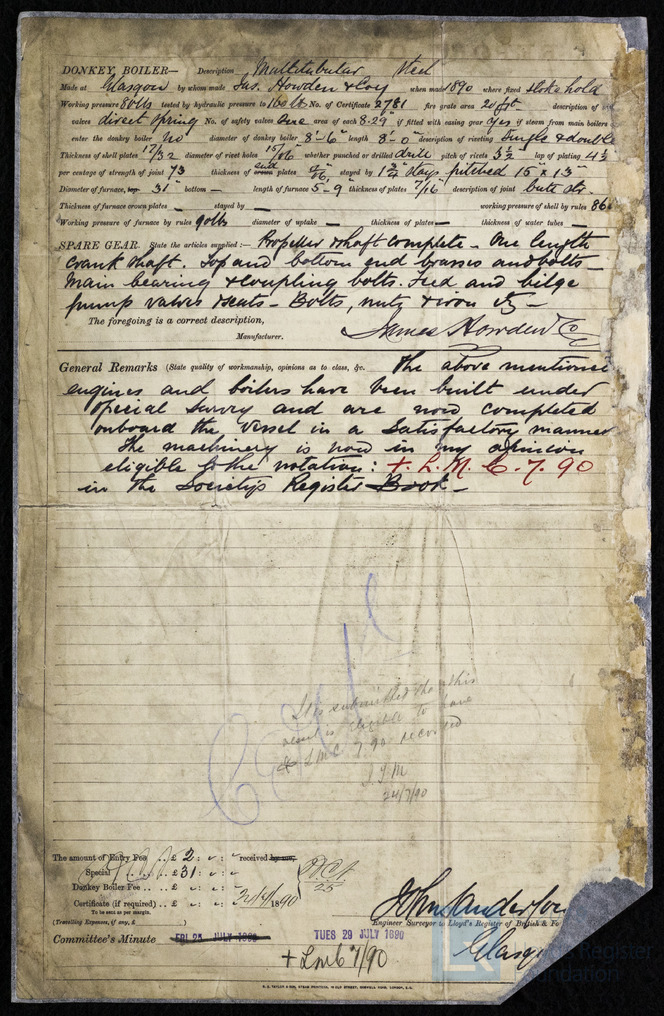 DONKEY BOILER— Description Multitubular Steel
Made at Glasgow by whom made Jas. Howden & Coy when made 1890 where fixed stoke hold
Working pressure 80 lbs tested by hydraulic pressure to 160 lbs No. of Certificate 2781 fire grate area 20 ft description of
valves direct spring No. of safety valves one area of each 8.29" if fitted with easing gear yes if steam from main boilers
enter the donkey boiler no diameter of donkey boiler 8'-6" length 8'-0" description of riveting single & double
Thickness of shell plates 17/32 diameter of rivet holes 15/16" whether punched or drilled drill pitch of rivets 3½ lap of plating 4½
per centage of strength of joint 73 thickness of crown end plates stayed by stays pitched 15" x 13"
Diameter of furnace, top 31" bottom — length of furnace 5-9" thickness of plates 7/16" description of joint butt str.
Thickness of furnace crown plates — stayed by — working pressure of shell by rules 86
Working pressure of furnace by rules 90 lbs diameter of uptake — thickness of plates — thickness of water tubes —
SPARE GEAR. State the articles supplied:— Propeller shaft complete — One length
crank shaft. Top and bottom end brasses and bolts —
Main bearing & coupling bolts. Feed and bilge
pump valves & seats — Bolts, nuts & iron &c —
The foregoing is a correct description,
Manufacturer. James Howden & Co
General Remarks (State quality of workmanship, opinions as to class, &c. The above mentioned
engines and boilers have been built under
special survey and are now completed
onboard the vessel in a satisfactory manner
The machinery is now in my opinion
eligible for the notation: + L.M.C. 7.90
in the Society's Register Book —
It is submitted that this
vessel is eligible to have
+ LMC 7.90 recorded
24/7/90
The amount of Entry Fee .. £ 2 : " : " received by me,
Special .. .. £ 31 : " : "
Donkey Boiler Fee .. .. £ " : " : "
Certificate (if required) .. £ " : " : " 1890
To be sent as per margin.
(Travelling Expenses, if any, £ )
John Anderson
Engineer Surveyor to Lloyd's Register of British & Fo
Glasgow
Committee's Minute FRI 25 JULY 1890 TUES 29 JULY 1890
+ Lmc 7/90